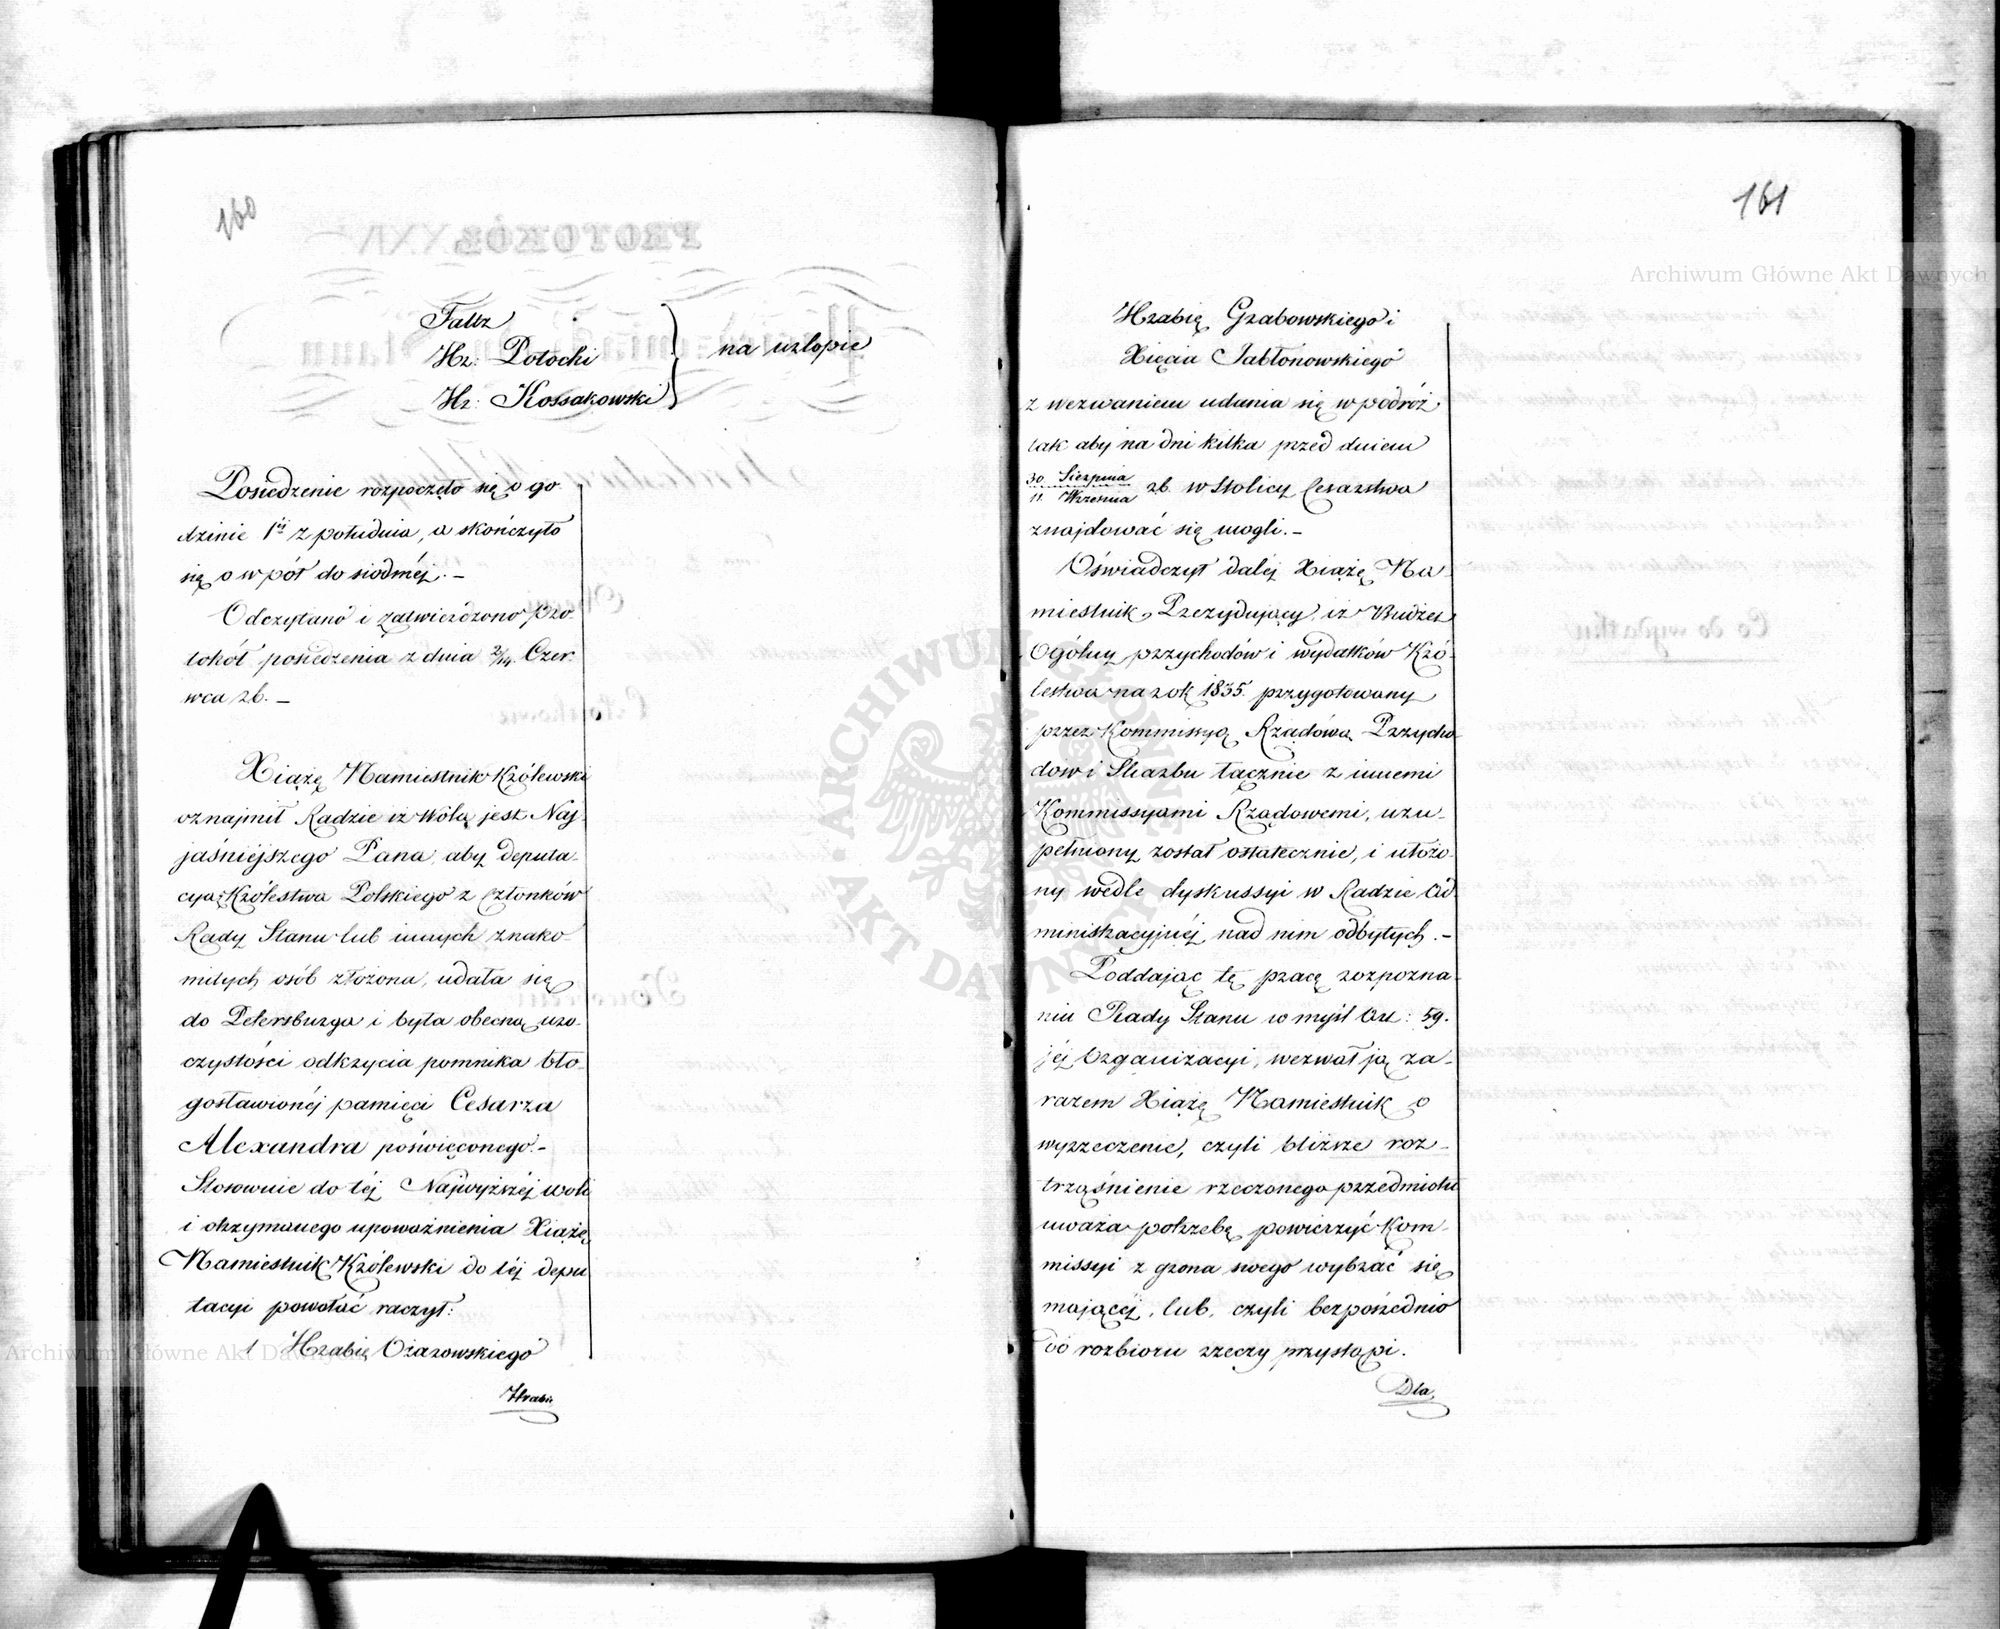 160
Faltz
Hr: Potocki
Hr: Kossakowski
na urlopie
Posiedzenie rozpoczęto się o go
dzinie 1éj z południa, a skończyło
się o w pół do siódméj. –
Odczytano i zatwierdzono pro-
tokół posiedzenia z dnia 2/14. Czer-
wca rb. –
Xiążę Namiestnik Królewski
oznajmił Radzie iż Wolą jest Naj-
jaśniejszego Pana, aby deputa-
cya Królestwa Polskiego z Członków
Rady Stanu lub innych znako-
mitych osób złożona, udała się
do Petersburga i była obecną uro-
czystości odkrycia pomnika bło-
gosławionéj pamięci Cesarza
Alexandra poświęconego. –
Stosownie do téj Najwyższéj woli
i otrzymanego upoważnienia Xiążę
Namiestnik Królewski do téj depu
tacyi powołać raczył:
1 Hrabię Ożarowskiego
Hrabię
161
Hrabię Grabowskiego i
Xięcia Jabłonowskiego
z wezwaniem udania się w podróż
tak aby na dni kilka przed dniem
30 Sierpnia
11 Września rb. w Stolicy Cesarstwa
znajdować się mogli. –
Oświadczył daléj Xiążę Na-
miestnik, Prezydujący, iż Budżet
Ogólny przychodów i wydatków Kró-
lestwa na rok 1835. przygotowany
przez Kommissyą Rządową Przycho-
dow i Skarbu łącznie z innemi
Kommissyami Rządowemi, uzu-
pełniony został ostatecznie, i ułożo-
ny wedle dyskussyi w Radzie Ad-
ministracyjnéj nad nim odbytych. –
Poddając tę pracę rozpozna-
niu Rady Stanu w myśl Art: 59.
jéj Organizacyi, wezwał ją za-
razem Xiążę Namiestnik o
wyrzeczenie, czyli bliższe roz-
trząśnienie rzeczonego przedmiotu
uważa potrzebę powierzyć Kom-
missyi z grona swego wybrać się
mającéj, lub, czyli bezpośrednio
do rozbioru rzeczy przystąpi.
Dla
Archiwum Główne Akt Dawnych
Archiwum Główne Akt Dawnych